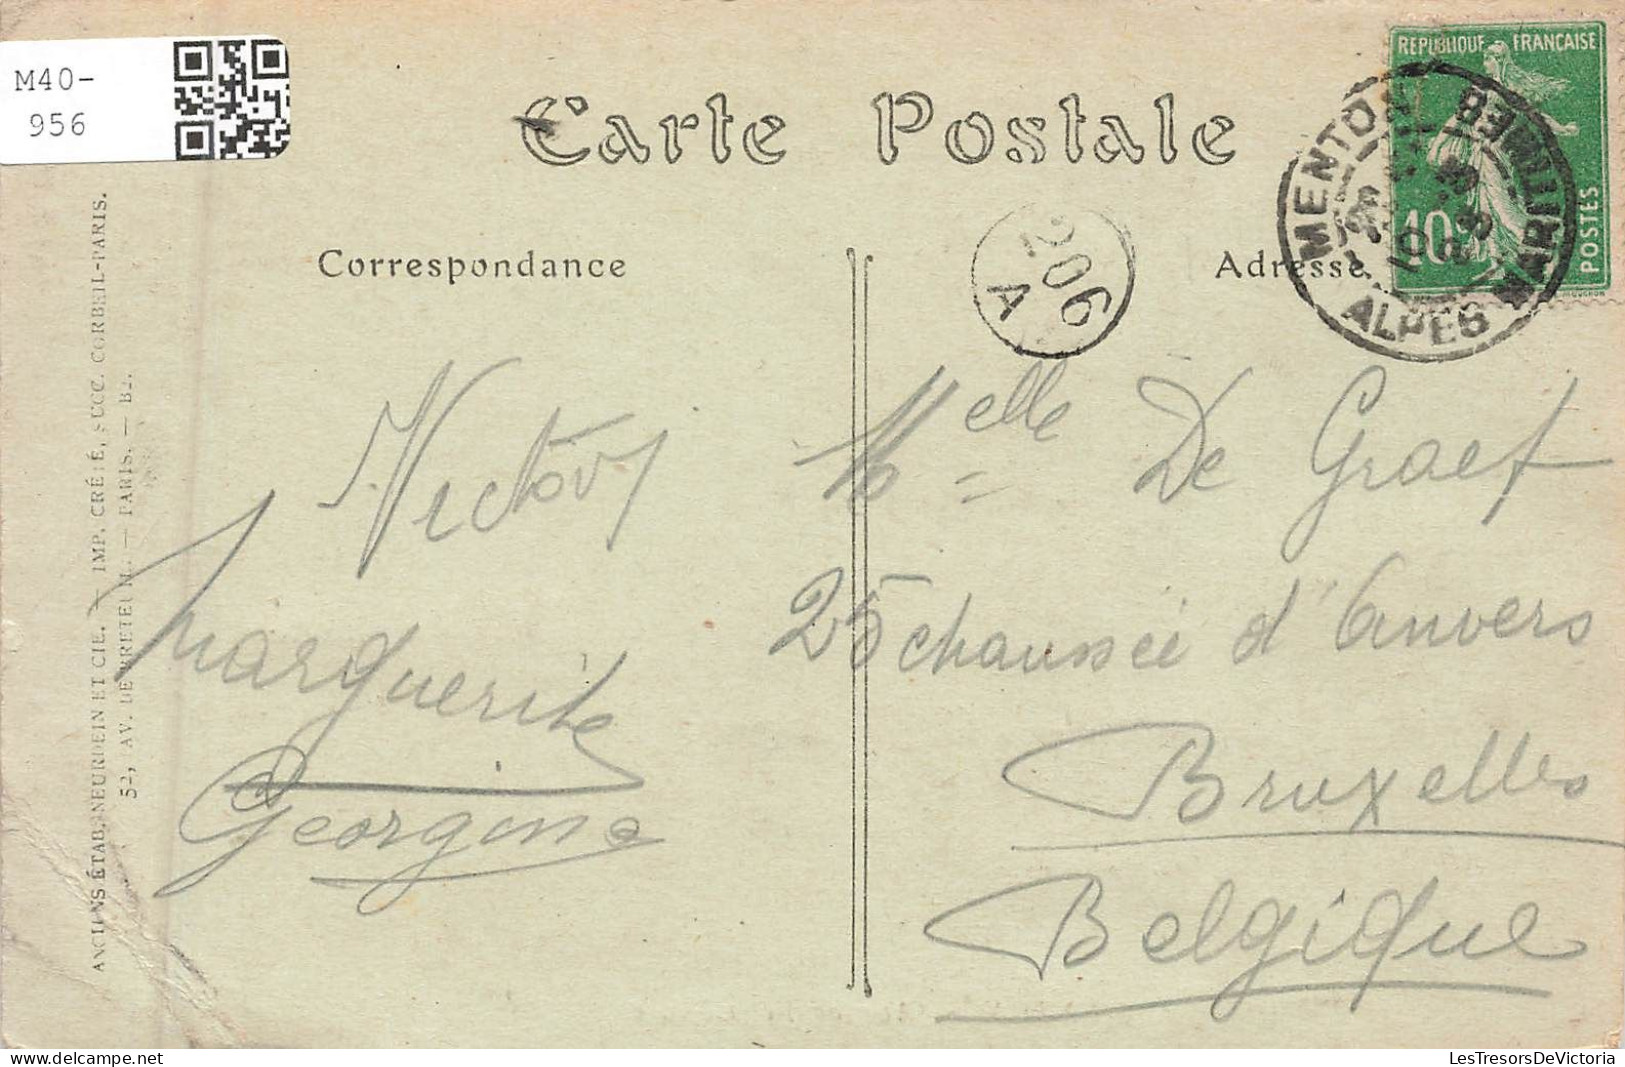 M40-
956
Carte Postale
RÉPUBLIQUE FRANÇAISE
10c
POSTES
MENTON
ALPES MARITIMES
206
A
Correspondance
Adresse
Victor
Marguerite
Georgina
Melle De Graef
25 chaussée d'Anvers
Bruxelles
Belgique
ANCIENS ÉTAB. NEURDEIN ET CIE. — IMP. CRÉTÉ, SUCC. CORBEIL-PARIS.
52, AV. DE BRETEUIL. — PARIS. —
LesTresorsDeVictoria
https://www.delcampe.net